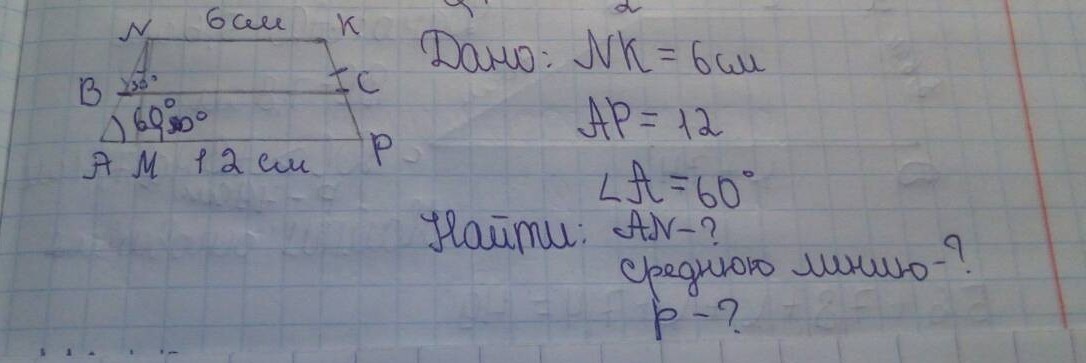 N 6 см K
B 30° C
60° 90°
A M 12 см P
Дано: NK = 6 см
AP = 12
∠A = 60°
Найти: AN - ?
среднюю линию - ?
p - ?